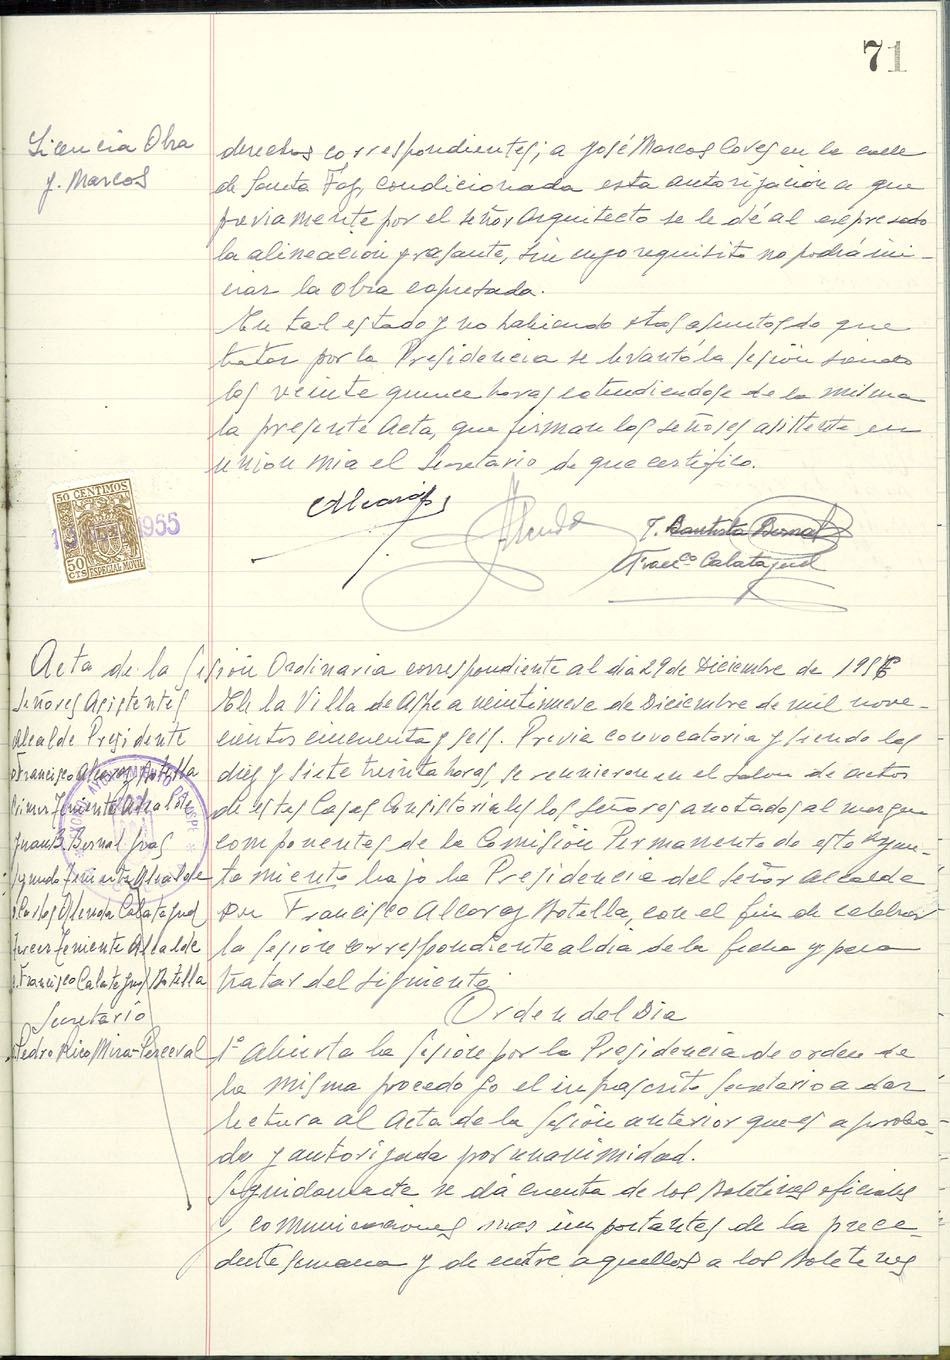 71
Licencia Obra
J. Marcos
derechos correspondientes; a José Marcos Caves en la calle
de Santa Faz, condicionada esta autorizacion a que
previamente por el señor Arquitecto se le dé al expresado
la alineacion y rasante, sin cuyo requisito no podrá ini-
ciar la obra expresada.
En tal estado y no habiendo otros asuntos de que
tratar por la Presidencia se levantó la sesión siendo
las veinte quince horas extendiendose de la misma
la presente Acta, que firman los señores asistente en
union mia el Secretario de que certifico.
50 CENTIMOS
1955
50 CTS ESPECIAL MOVIL
Alcaraz
J. Bautista Bernal
Franco Calatayud
Acta de la Sesión Ordinaria correspondiente al dia 29 de Diciembre de 1956
Señores Asistentes
Alcalde Presidente
Francisco Alcaraz Botella
Primer Teniente Alcalde
Juan B. Bernal
Segundo Teniente Alcalde
Carlos Calatayud
Tercer Teniente Alcalde
Francisco Calatayud Botella
Secretario
Pedro Rico Mira-Perceval
En la Villa de Aspe a veintinueve de Diciembre de mil nove-
cientos cincuenta y seis. Previa convocatoria y siendo las
diez y siete treinta horas, se reunieron en el salon de actos
de estas Casas Consistoriales los señores anotados al margen
componentes de la Comisión Permanente de este Ayun-
tamiento bajo la Presidencia del Señor Alcalde
Don Francisco Alcaraz Botella, con el fin de celebrar
la sesión correspondiente al dia de la fecha y para
tratar del siguiente
Orden del Dia
1º Abierta la sesión por la Presidencia de orden de
la misma procedo yo el infrascrito Secretario a dar
lectura al Acta de la sesión anterior que es aproba-
da y autorizada por unanimidad.
Seguidamente se dá cuenta de los Boletines oficiales
y comunicaciones mas importantes de la prece-
dente semana y de entre aquellos a los Boletines